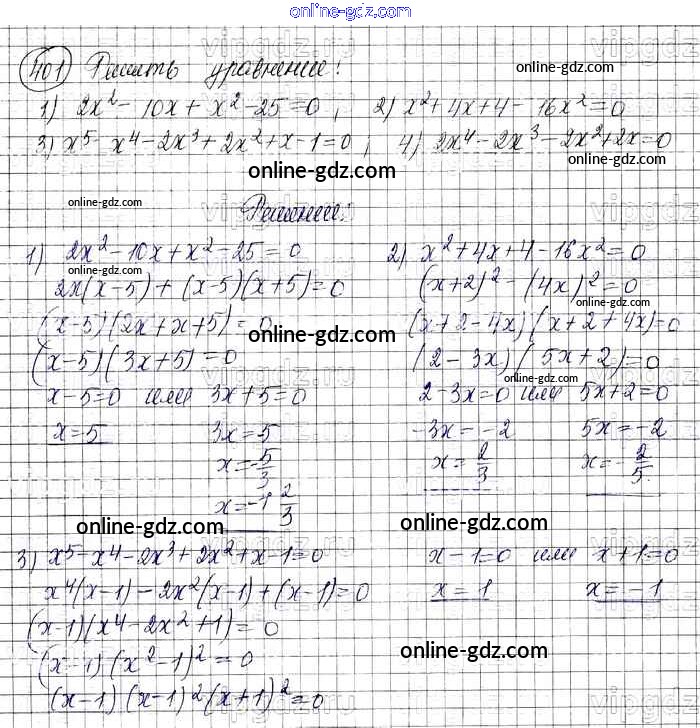 online-gdz.com
401) Решить уравнение!
online-gdz.com
1) 2x² - 10x + x² - 25 = 0, 2) x² + 4x + 4 - 16x² = 0
3) x⁵ - x⁴ - 2x³ + 2x² + x - 1 = 0; 4) 2x⁴ - 2x³ - 2x² + 2x = 0
online-gdz.com
online-gdz.com
online-gdz.com
Решение:
1) 2x² - 10x + x² - 25 = 0
online-gdz.com
2x(x-5) + (x-5)(x+5) = 0
(x-5)(2x+x+5) = 0
online-gdz.com
(x-5)(3x+5) = 0
x-5=0 или 3x+5=0
x=5 3x=-5
x=-5/3
x=-1 2/3
2) x² + 4x + 4 - 16x² = 0
(x+2)² - (4x)² = 0
online-gdz.com
(x+2-4x)(x+2+4x)=0
(2-3x)(5x+2)=0
online-gdz.com
2-3x=0 или 5x+2=0
-3x=-2 5x=-2
x=2/3 x=-2/5
online-gdz.com
online-gdz.com
3) x⁵ - x⁴ - 2x³ + 2x² + x - 1 = 0
x⁴(x-1) - 2x²(x-1) + (x-1) = 0
(x-1)(x⁴ - 2x² + 1) = 0
(x-1)(x²-1)² = 0
(x-1)(x-1)²(x+1)² = 0
x-1=0 или x+1=0
x=1 x=-1
online-gdz.com
vipgdz.ru